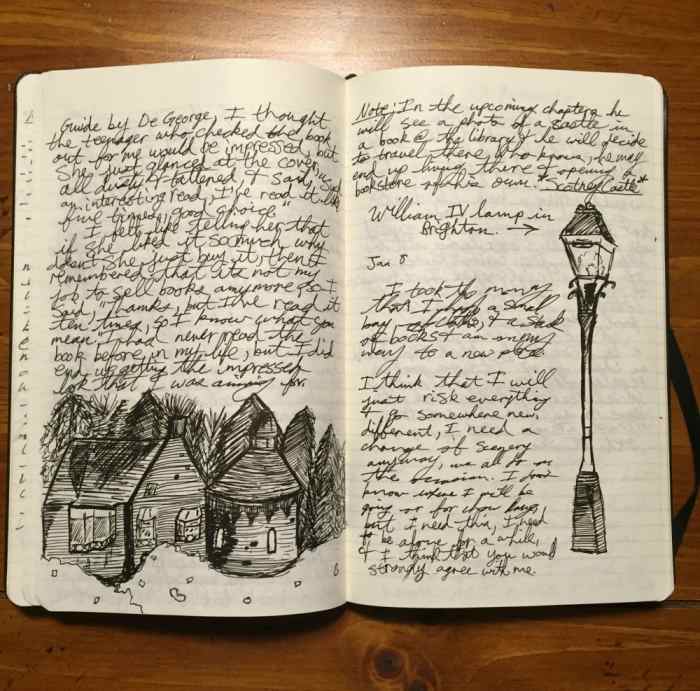 Guide by De George, I thought
the teenager who checked the book
out for me would be impressed, but
she just glanced at the cover,
all flattened, & said,
an interesting read, I've read it like
five times, good choice."
I felt like telling her that
if she liked it so much why
doesn't she just buy it, then I
remembered that its not my
job to sell books anymore so I
said, "Thanks, but I've read it
ten times, so I know what you
mean." I had never read the
book before in my life, but I did
end up getting the impressed
look that I was aiming for.
Note: In the upcoming chapters he
will see a photo of a castle in
a book @ the library & he will decide
to travel there, who knows, he may
end up living there & opening a
bookstore of his own. *Scotney Castle*
William IV lamp in
Brighton. →
Jan 8
I took the money
that I had, a small
bag, & a stack
of books & I am on my
way to a new place.
I think that I will
just risk everything
& go somewhere new,
different, I need a
change of scenery
anyway, we all do on
the occasion. I don't
know where I will be
going or for how long,
but I need this, I need
to be alone for a while,
& I think that you would
strongly agree with me.